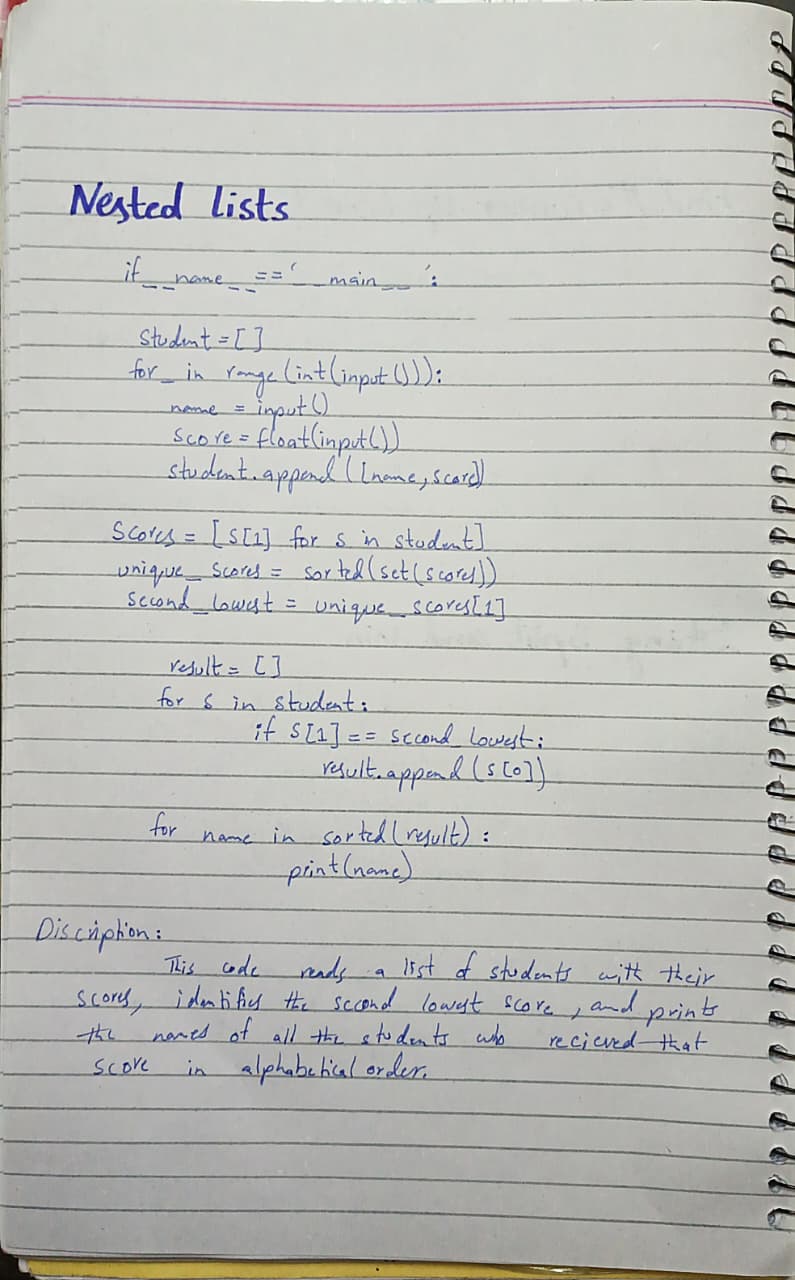 Nested lists
if __name__ == '__main__':
student = []
for _ in range(int(input())):
name = input()
score = float(input())
student.append([name, score])
Scores = [s[1] for s in student]
unique_scores = sorted(set(scores))
second_lowest = unique_scores[1]
result = []
for s in student:
if s[1] == second_lowest:
result.append(s[0])
for name in sorted(result):
print(name)
Discription:
This code reads a list of students with their
scores, identifies the second lowest score, and prints
the names of all the students who recieved that
score in alphabetical order.